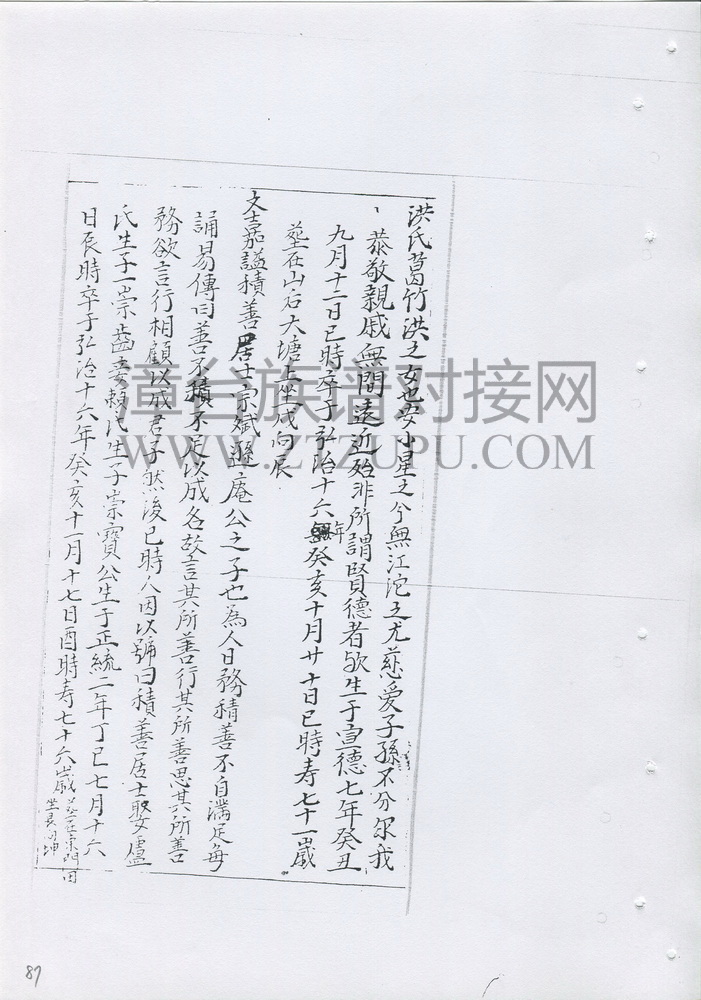 洪氏莒竹洪之女也安小星之令無江沱之尤慈愛子孫不分尔我
恭敬親戚無間遠近殆非所謂賢德者欤生于宣德七年癸丑
九月十二日巳時卒于弘治十六年癸亥十月廿十日巳時寿七十一歲
塟在山石大塘上坐戍向辰
文嘉謚積善居士宗斌遯庵公之子也為人日務積善不自滿足每
誦易傳曰善不積不足以成名故言其所善行其所善思其所善
務欲言行相顧以成君子然後已時人因以號曰積善居士娶盧
氏生子一崇 妾賴氏生子崇寶公生于正統二年丁巳七月十六
日辰時卒于弘治十六年癸亥十一月十七日酉時寿七十六歲塟在宗門田
坐艮向坤
漳台族谱对接网
WWW.ZTZUPU.COM
87